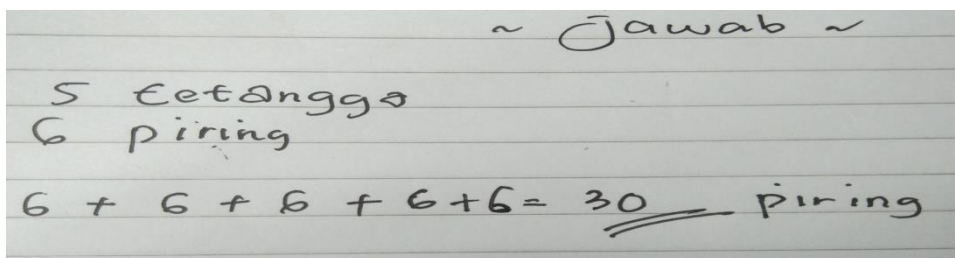 ~ Jawab ~
5 tetangga
6 piring
6 + 6 + 6 + 6 + 6 = 30 piring